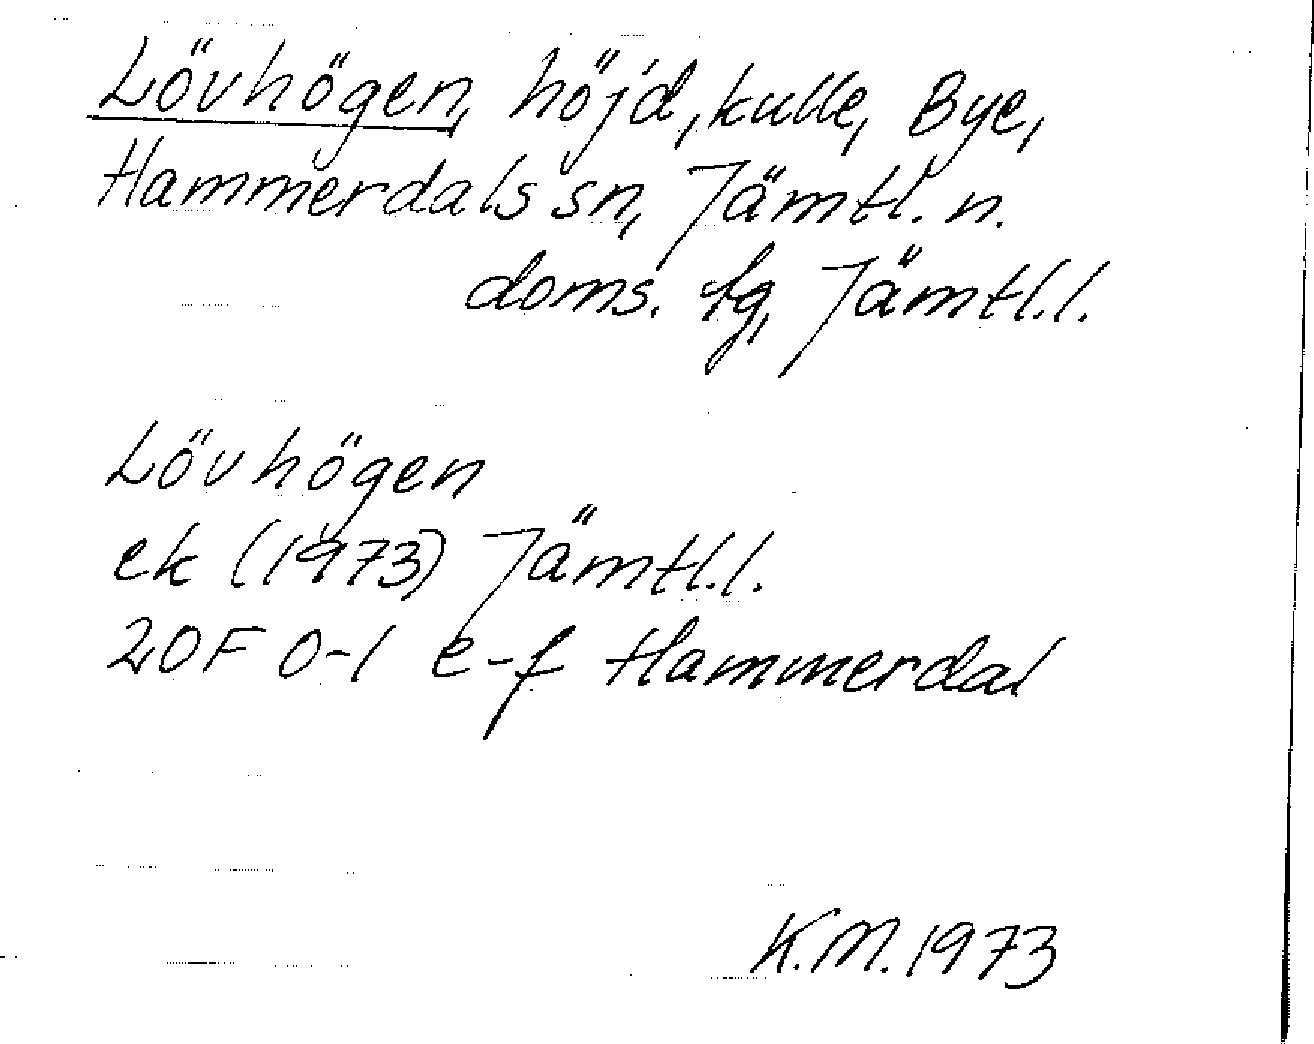 Lövhögen, höjd, kulle, Bye,
Hammerdals sn, Jämtl. n.
doms. tg, Jämtl. l.
Lövhögen
ek (1973) Jämtl. l.
20F 0-1 e-f Hammerdal
K.M. 1973